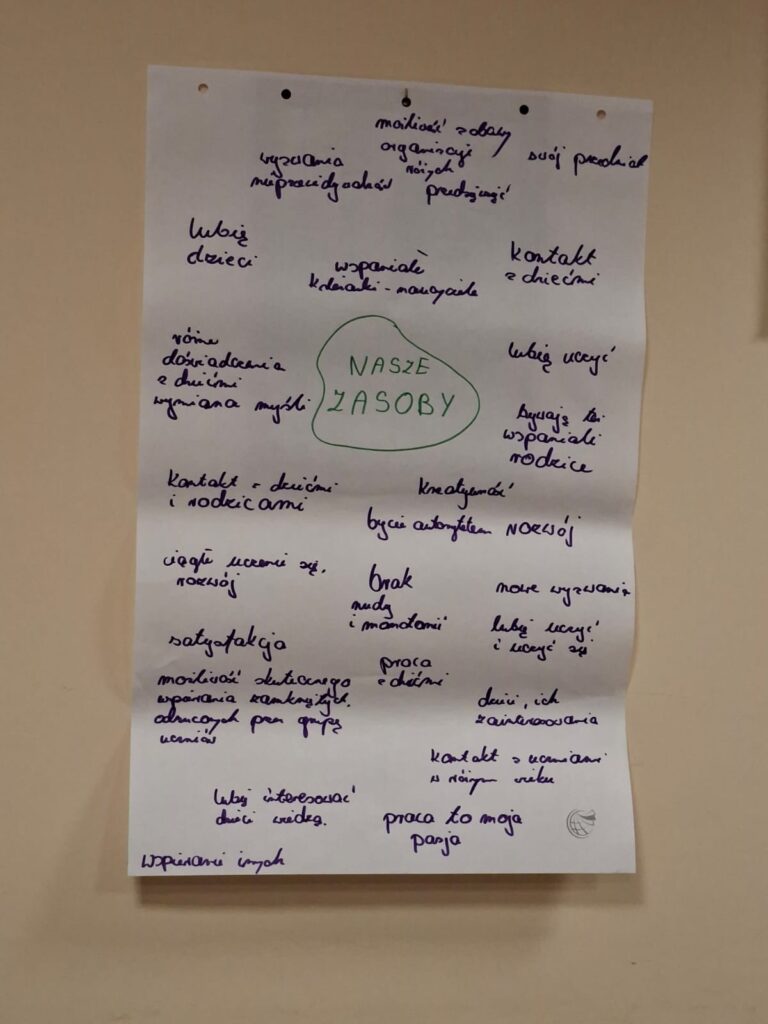 możliwość zabawy
organizacji
różnych
przedsięwzięć
swój przedmiot
wyzwania
lubię
dzieci
wspaniałe
koleżanki - nauczyciele
kontakt
z dziećmi
różne
doświadczenia
z dziećmi
wymiana myśli
NASZE
ZASOBY
lubię uczyć
bywają też
wspaniali
rodzice
kontakt z dziećmi
i rodzicami
kreatywność
bycie autorytetem
ROZWÓJ
ciągłe uczenie się,
rozwój
brak
nudy
i monotonii
nowe wyzwania
lubię uczyć
i uczyć się
satysfakcja
praca
z dziećmi
możliwość skutecznego
wspierania zamkniętych,
odrzuconych przez grupę
uczniów
dzieci, ich
zainteresowania
kontakt z uczniami
w różnym wieku
lubię interesować
dzieci wiedzą.
praca to moja
pasja
wspieranie innych